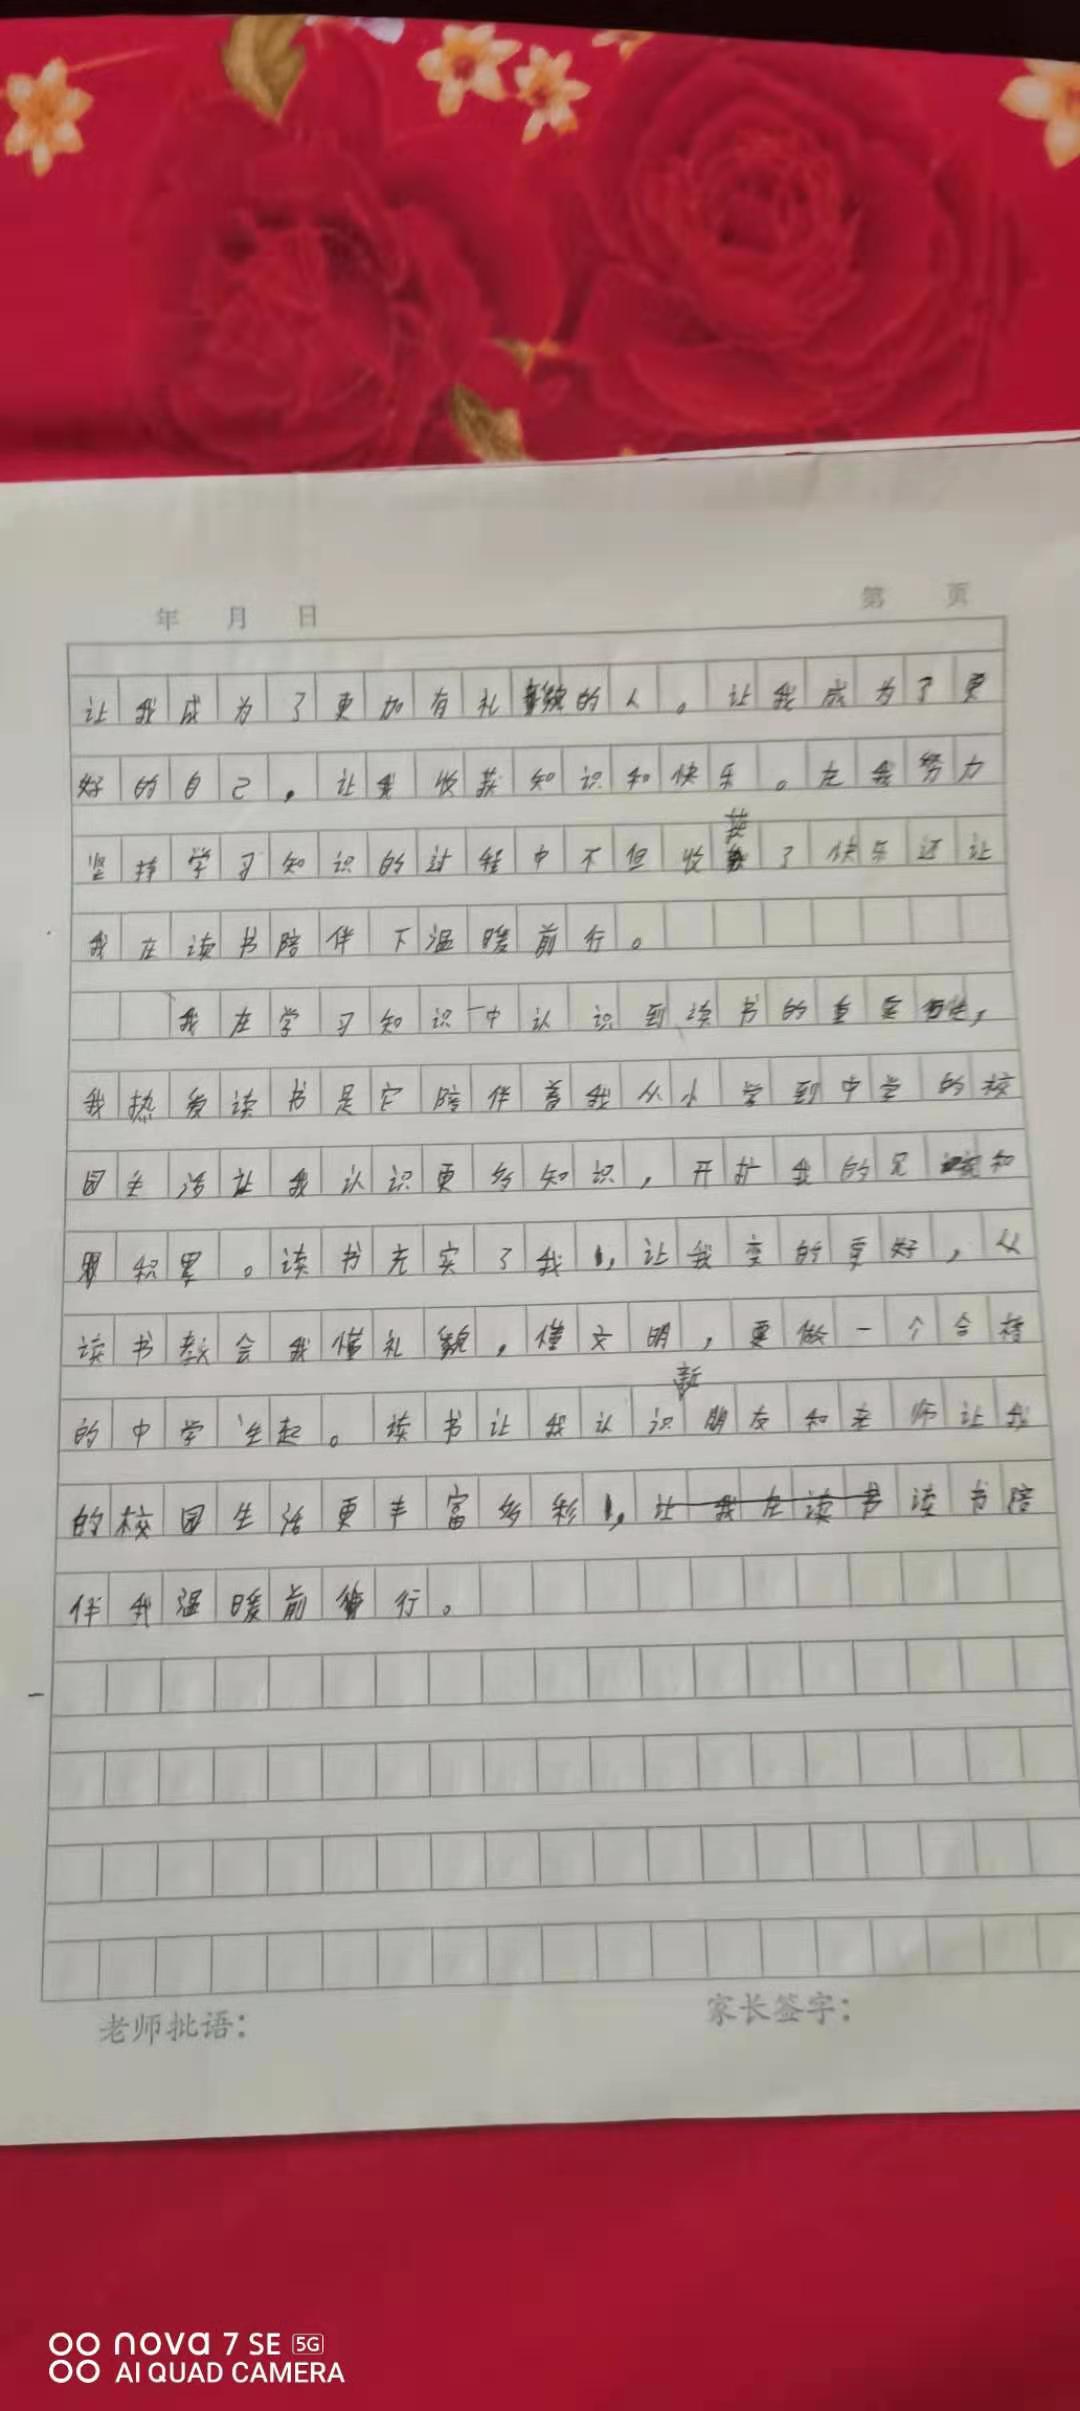 年 月 日 第 页
让我成为了更加有礼貌的人。让我成为了更
好的自己,让我收获知识和快乐。在我努力
坚持学习知识的过程中不但收获了快乐还让
我在读书陪伴下温暖前行。
我在学习知识中认识到读书的重要性,
我热爱读书是它陪伴着我从小学到中学的校
园生活让我认识更多知识,开扩我的见识和
积累。读书充实了我,让我变的更好,从
读书教会我懂礼貌,懂文明,要做一个合格
的中学生起。读书让我认识新朋友和老师让我
的校园生活更丰富多彩,让我在读书读书陪
伴我温暖前行。
老师批语: 家长签字:
nova 7 SE 5G
AI QUAD CAMERA